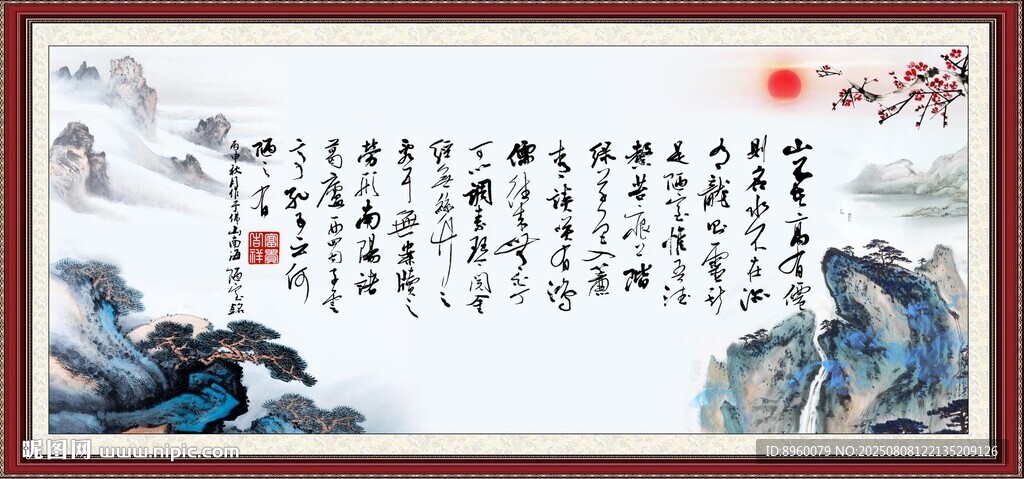 山不在高有僊
则名水不在深
有龍則靈斯
是陋室惟吾德
馨苔痕上階
绿草色入簾
青談笑有鴻
儒往来無白丁
可以調素琴閱金
經無絲竹之
亂耳無案牘之
勞形南陽諸
葛廬西蜀子雲
亭孔子云何
陋之有
丙申秋月作于佛山南海 陋室銘
富貴吉祥
昵图网 www.nipic.com
ID:8960079 NO:20250808122135209126